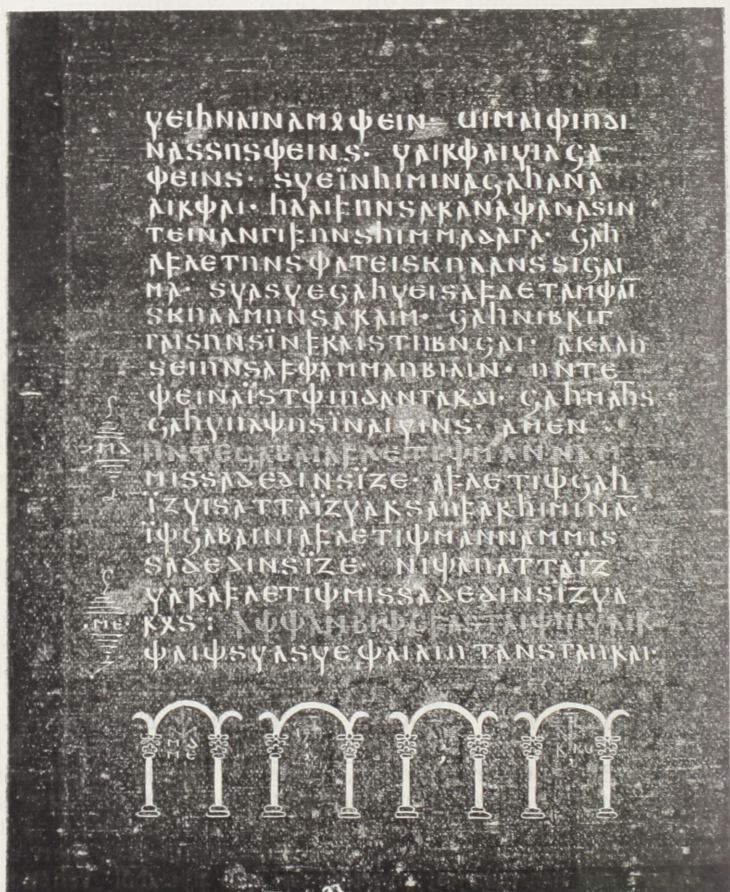 𐍅𐌴𐌹𐌷𐌽𐌰𐌹𐌽𐌰𐌼𐍉𐌸𐌴𐌹𐌽· 𐌵𐌹𐌼𐌰𐌹𐌸𐌹𐌿𐌳𐌹
𐌽𐌰𐍃𐍃𐌿𐍃𐌸𐌴𐌹𐌽𐍃· 𐍅𐌰𐌹𐍂𐌸𐌰𐌹𐍅𐌹𐌻𐌾𐌰
𐌸𐌴𐌹𐌽𐍃· 𐍃𐍅𐌴𐌹̈𐌽𐌷𐌹𐌼𐌹𐌽𐌰𐌾𐌰𐌷𐌰𐌽𐌰
𐌰𐌹𐍂𐌸𐌰𐌹· 𐌷𐌻𐌰𐌹𐍆𐌿𐌽𐍃𐌰𐍂𐌰𐌽𐌰𐌸𐌰𐌽𐌰𐍃𐌹𐌽
𐍄𐌴𐌹𐌽𐌰𐌽𐌲𐌹𐍆𐌿𐌽𐍃𐌷𐌹𐌼𐌼𐌰𐌳𐌰𐌲𐌰· 𐌾𐌰𐌷
𐌰𐍆𐌻𐌴𐍄𐌿𐌽𐍃𐌸𐌰𐍄𐌴𐌹𐍃𐌺𐌿𐌻𐌰𐌽𐍃𐍃𐌹𐌾𐌰𐌹
𐌼𐌰· 𐍃𐍅𐌰𐍃𐍅𐌴𐌾𐌰𐌷𐍅𐌴𐌹𐍃𐌰𐍆𐌻𐌴𐍄𐌰𐌼𐌸𐌰𐌹̅
𐍃𐌺𐌿𐌻𐌰𐌼𐌿𐌽𐍃𐌰𐍂𐌰𐌹𐌼· 𐌾𐌰𐌷𐌽𐌹𐌱𐍂𐌹𐌲
𐌲𐌰𐌹𐍃𐌿𐌽𐍃𐌹̈𐌽𐍆𐍂𐌰𐌹𐍃𐍄𐌿𐌱𐌽𐌾𐌰𐌹· 𐌰𐌺𐌻𐌰𐌿
𐍃𐌴𐌹𐌿𐌽𐍃𐌰𐍆𐌸𐌰𐌼𐌼𐌰𐌿𐌱𐌹𐌻𐌹𐌽· 𐌿𐌽𐍄𐌴
𐌸𐌴𐌹𐌽𐌰𐌹̈𐍃𐍄𐌸𐌹𐌿𐌳𐌰𐌽𐌲𐌰𐍂𐌳𐌹· 𐌾𐌰𐌷𐌼𐌰𐌷𐍄𐍃·
·𐌼𐌳· 𐌾𐌰𐌷𐍅𐌿𐌻𐌸𐌿𐍃𐌹̈𐌽𐌰𐌹𐍅𐌹𐌽𐍃· 𐌰𐌼𐌴𐌽·
𐌿𐌽𐍄𐌴𐌾𐌰𐌱𐌰𐌹𐌰𐍆𐌻𐌴𐍄𐌹𐌸𐌼𐌰𐌽𐌽𐌰𐌼
𐌼𐌹𐍃𐍃𐌰𐌳𐌴𐌳𐌹𐌽𐍃𐌹̈𐌶𐌴· 𐌰𐍆𐌻𐌴𐍄𐌹𐌸𐌾𐌰𐌷
𐌹̈𐌶𐍅𐌹𐍃𐌰𐍄𐍄𐌰𐌹̈𐌶𐍅𐌰𐍂𐍃𐌰𐌿𐍆𐌰𐍂𐌷𐌹𐌼𐌹𐌽𐌰̅·
𐌹̈𐌸𐌾𐌰𐌱𐌰𐌹𐌽𐌹𐌰𐍆𐌻𐌴𐍄𐌹𐌸𐌼𐌰𐌽𐌽𐌰𐌼𐌼𐌹𐍃
𐍃𐌰𐌳𐌴𐌳𐌹𐌽𐍃𐌹̈𐌶𐌴· 𐌽𐌹𐌸𐌰𐌿𐌰𐍄𐍄𐌰𐌹̈𐌶
𐍅𐌰𐍂𐌰𐍆𐌻𐌴𐍄𐌹𐌸𐌼𐌹𐍃𐍃𐌰𐌳𐌴𐌳𐌹𐌽𐍃𐌹̈𐌶𐍅𐌰
·𐌼𐌴· 𐍂𐍉𐍃: 𐌰𐌸𐌸𐌰𐌽𐌱𐌹𐌸𐌴𐍆𐌰𐍃𐍄𐌰𐌹𐌸𐌽𐌹𐍅𐌰𐌹𐍂
𐌸𐌰𐌹𐌸𐍃𐍅𐌰𐍃𐍅𐌴𐌸𐌰𐌹𐌻𐌹𐌿𐍄𐌰𐌽𐍃𐌲𐌰𐌿𐍂𐌰𐌹·